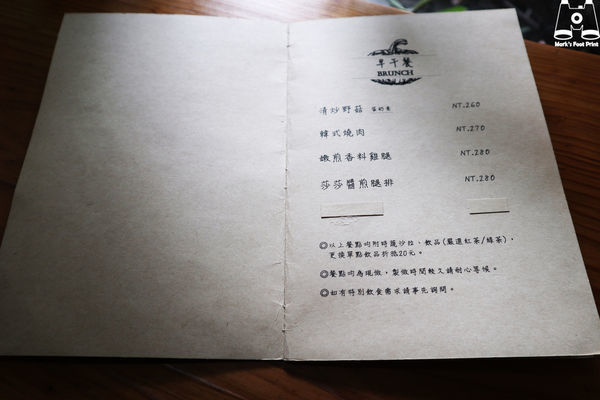 Mark's Foot Print
早午餐
BRUNCH
清炒野菇 蛋奶素 NT.260
韓式燒肉 NT.270
嫩煎香料雞腿 NT.280
莎莎醬煎腿排 NT.280
◎以上餐點均附時蔬沙拉、飲品(嚴選紅茶/綠茶),
更換單點飲品折抵20元。
◎餐點均為現做,製做時間較久請耐心等候。
◎如有特別飲食需求請事先詢問。